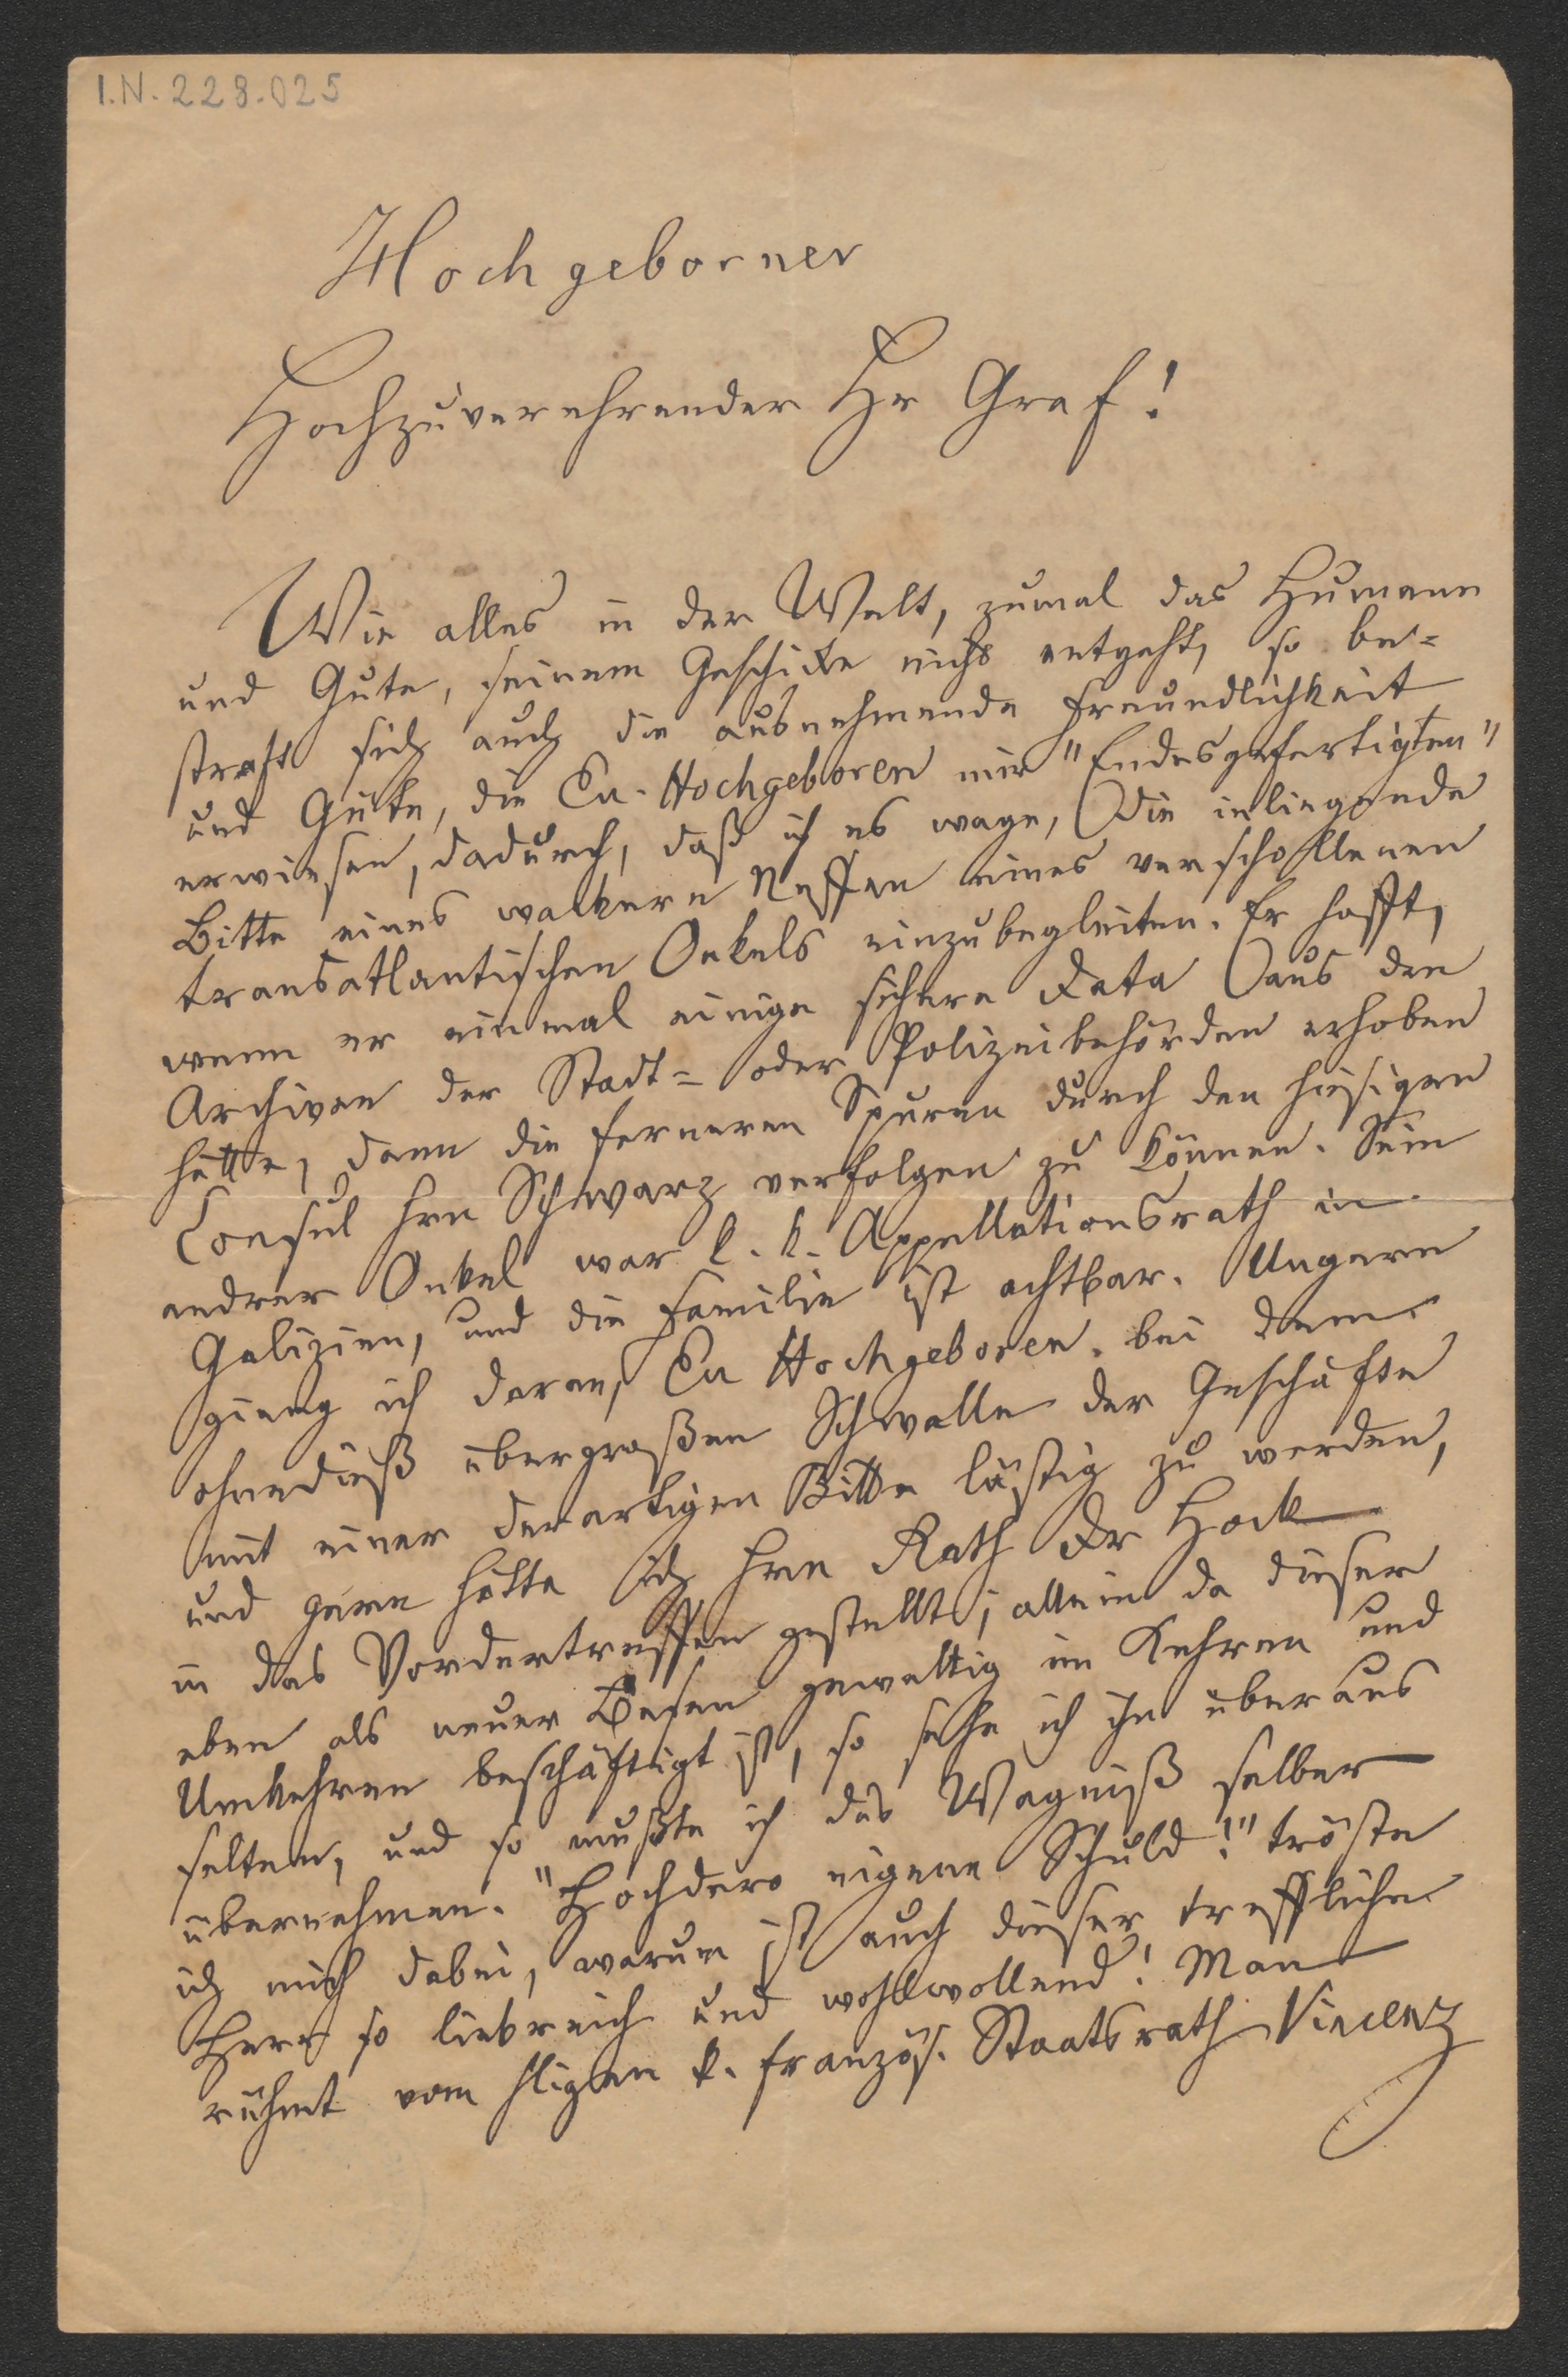 I.N. 228.025
Hochgeborner
Hochzuverehrender Hr Graf!
Wie alles in der Welt, zumal das Humane
und Gute, seinem Geschicke nicht entgeht, so be=
straft sich auch die ausnehmende Freundlichkeit
und Güte, die Eu. Hochgeboren mir "Endesgefertigten"
erwiesen, dadurch, daß ich es wage, die inliegende
Bitte eines wackern Neffen eines verschollenen
transatlantischen Onkels einzubegleiten. Er hofft,
wenn er einmal einige sichere Data aus den
Archiven der Stadt= oder Polizeibehörden erhoben
hätte, dann die ferneren Spuren durch den hiesigen
Consul Hrn Schwarz verfolgen zu können. Sein
andrer Onkel war k. k. Appellationsrath in
Galizien, und die Familie ist achtbar. Ungern
gieng ich daran, Eu Hochgeboren. bei dem
ohnedieß übergroßen Schwalle der Geschäfte
mit einer derartigen Bitte lästig zu werden,
und gerne hätte ich Hrn Rath Dr Hock
in das Vordertreffen gestellt; allein da dieser
eben als neuer Besen gewaltig im Kehren und
Umkehren beschäftigt ist, so sehe ich ihn überaus
selten, und so mußte ich das Wagniß selber
übernehmen. "Hochdero eigene Schuld!" tröste
ich mich dabei, warum ist auch dieser treffliche
Herr so liebreich und wohlwollend! Man
rühmt vom hligen k. französ. Staatsrath Vincenz